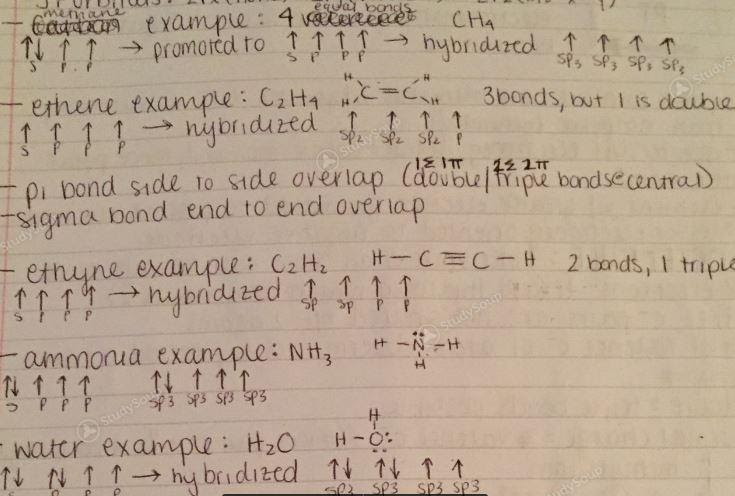 - methane example: 4 equal bonds CH4
↑↓ ↑ ↑ → promoted to ↑ ↑ ↑ ↑ → hybridized ↑ ↑ ↑ ↑
S P P S P P P SP3 SP3 SP3 SP3
- ethene example: C2H4 H H C=C H H 3 bonds, but 1 is double
↑ ↑ ↑ ↑ → hybridized ↑ ↑ ↑ ↑
S P P P SP2 SP2 SP2 P
1Σ 1π 2π
- pi bond side to side overlap (double/triple bonds@central)
- sigma bond end to end overlap
- ethyne example: C2H2 H-C≡C-H 2 bonds, 1 triple
↑ ↑ ↑ ↑ → hybridized ↑ ↑ ↑ ↑
S P P P SP SP P P
- ammonia example: NH3 H-N-H
H
↑↓ ↑ ↑ ↑ ↑↓ ↑ ↑ ↑
S P P P SP3 SP3 SP3 SP3
H
- water example: H2O H-O:
↑↓ ↑↓ ↑ ↑ → hybridized ↑↓ ↑↓ ↑ ↑
SP3 SP3 SP3 SP3
StudySoup